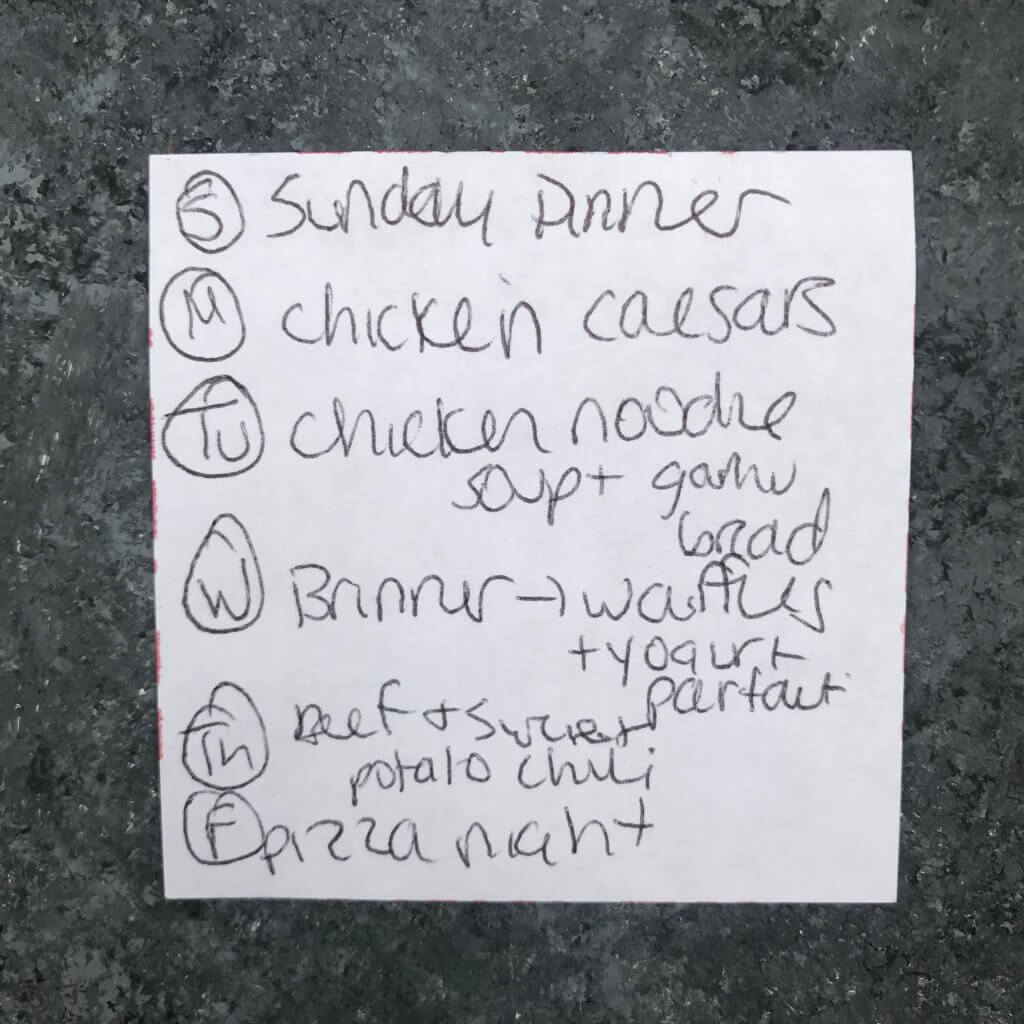 S Sunday Dinner
M chicken caesars
Tu chicken noodle
soup + garlic
bread
W Brinner → waffles
+ yogurt
parfait
Th Beef + sweet
potato chili
F pizza night